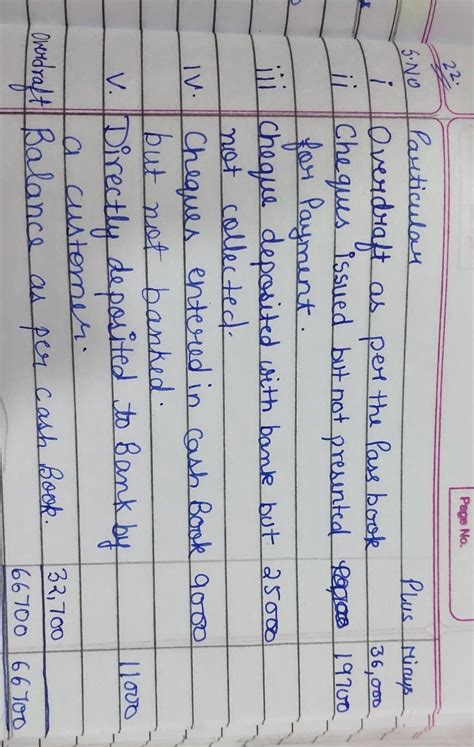 Page No.
22.
S.No Particular Plus Minus
i Overdraft as per the Pass book 36,000
ii Cheques issued but not presented 19700
for Payment.
iii Cheque deposited with bank but 25000
not collected.
iv. Cheques entered in Cash Book 9000
but not banked.
v. Directly deposited to Bank by 11000
a customer.
32,700
Overdraft Balance as per cash Book. 66700 66700